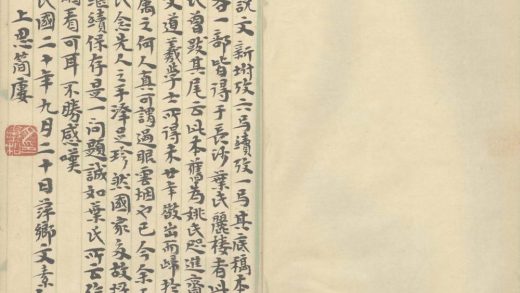 説文新坿攷六弓續攷一弓其底稿本
一部皆得于長沙葉氏麗廔者此
氏曾跋其尾云此本舊為姚氏咫進齋
文道羲學士所得未廿年散出而歸於
屬之何人真可謂過眼雲烟也已今余
氏念先人之手澤足珍然國家多故
繼續保存是一問題誠如葉氏所云作
烟看可耳不勝感嘆
民國二十年九月二十日萍鄉文素
上思簡廔